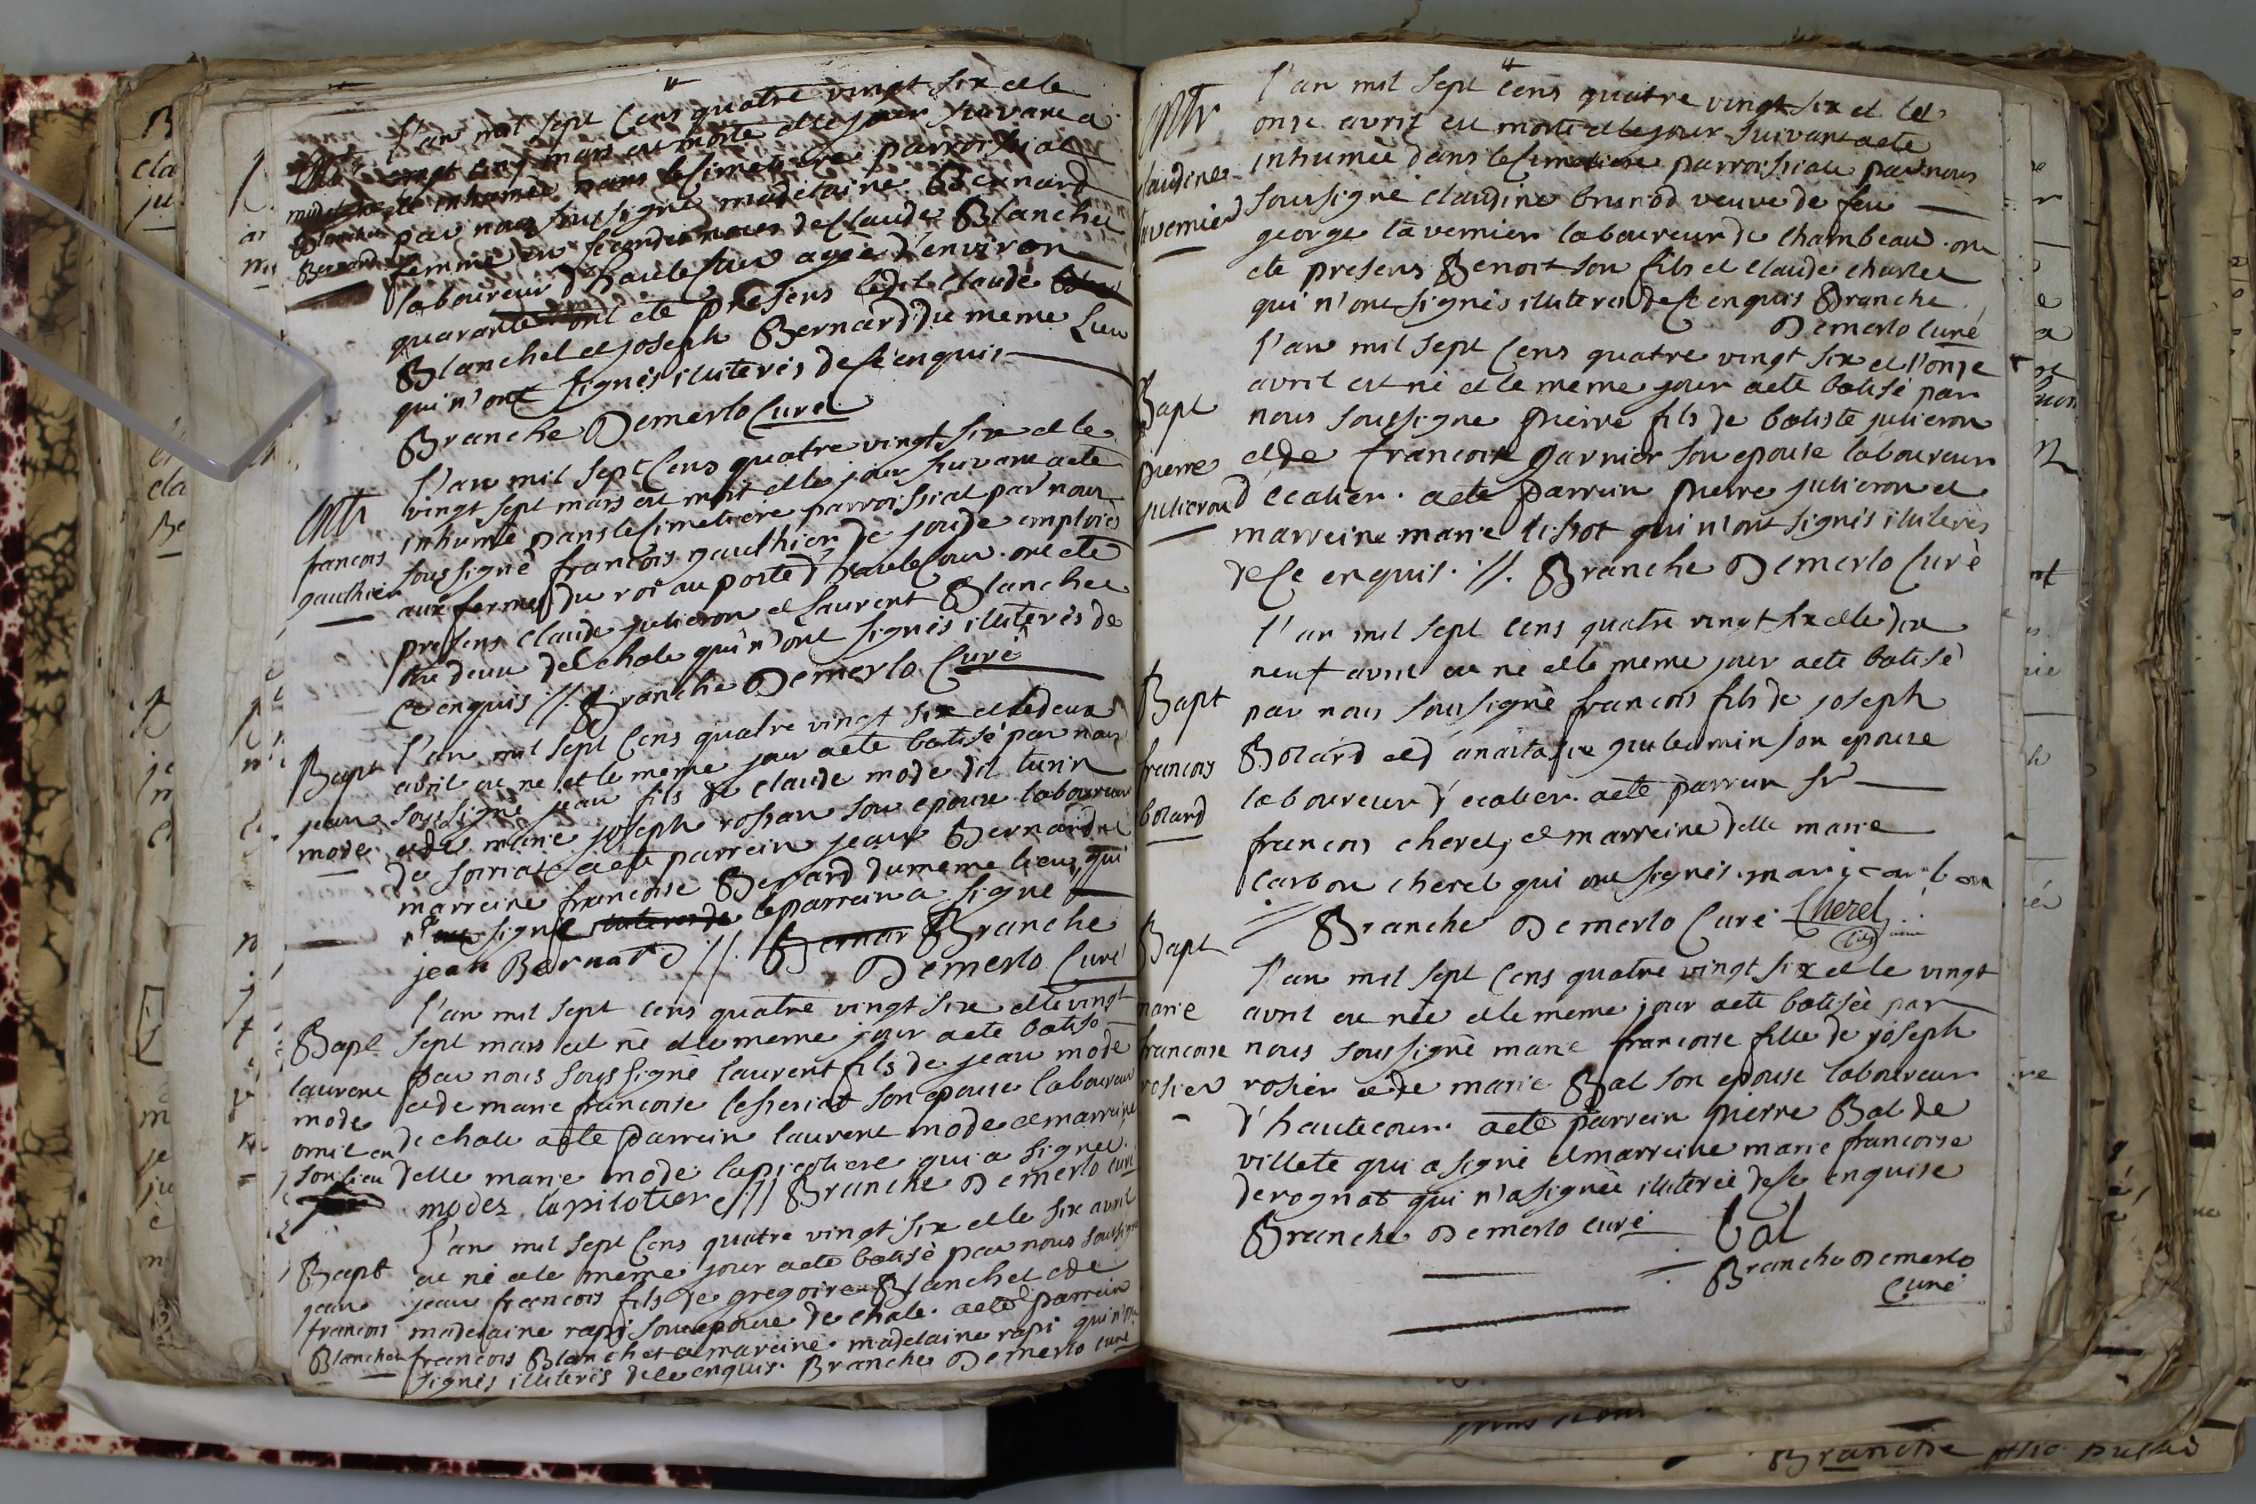 l'an mil sept Cens quatre vingt six et le
vingt cinq mars est morte et le jour suivant a
été inhumée dans le simetiere parroissial
par nous soussigné madelaine Bernard
femme en secondes noces de Claude Blanchet
laboureur d'hautecour agée d'environ
quarante ont eté presens ledit Claude
Blanchet et joseph Bernard du meme Lieu
qui n'ont signés illiterés de ce enquis
Branche Demerlo Curé
Mtr
madelaine
Blanchet
Bernard
l'an mil sept Cens quatre vingt six et le
vingt sept mars est mort et le jour suivant aeté
inhumé dans le simetiere parroissial par nous
soussigné francois gauthier de joude emploiés
aux fermes du roi au poste d'hautecour. ont eté
presens Claude julieron et laurent Blanchet
tous deux de Chale qui n'ont signés illiterés de
Ce enquis //. Branche Demerlo Curé
Mtr
francois
gauthier
l'an mil sept Cens quatre vingt six et le deux
avril est né et le meme jour aeté batisé par nous
soussigné jean fils de claude mode dit turin
et de marie joseph rossan son epouse laboureur
de soiriat aeté parrein jean Bernard et
marreine francoise Bepard du meme lieu qui
n'ont signé illiterés de le parrein a signé
jean Bernard //. Bernar Branche
Demerlo Curé
Bapt
jean
mode
l'an mil sept cens quatre vingt six et le vingt
sept mars est né et le meme jour aeté batisé
par nous soussigné laurent fils de jean mode
et de marie francoise lesseriat son epouse laboureur
de chale aeté parrein laurent mode et marreine
delle marie mode lapicotiere qui a signée.
modez lapilotiere /// Branche Demerlo Curé
Bapt
laurent
mode
omit en
son lieu
l'an mil sept Cens quatre vingt six et le six avril
est né et le meme jour aeté batisé par nous soussigné
jean francois fils de gregoire Blanchet et de
madelaine rapi son epouse de chale. aeté parrein
francois Blanchet et mareine madelaine rapi qui n'ont
signés illiterés de ce enquis. Branche Demerlo curé
Bapt
jean
francois
Blanchet
l'an mil sept Cens quatre vingt six et le
onze avril est morte et le jour suivant aeté
inhumée dans le simetiere parroissiale par nous
soussigné claudine brunod veuve de feu
george tavernier laboureur de chambeau. ont
eté presens Benoit son fils et claude charlet
qui n'ont signés illiterés de ce enquis Branche
Demerlo Curé
Mtr
claudine
tavernier
l'an mil sept Cens quatre vingt six et l'onze
avril est né et le meme jour aeté batisé par
nous soussigné pierre fils de batiste julieron
et de francoise garnier son epouse laboureur
d'ecalier. aeté parrein pierre julieron et
marreine marie tissot qui n'ont signés illiterés
de Ce enquis. //. Branche Demerlo Curé
Bapt
pierre
julieron
l'an mil sept cens quatre vingt six et le dix
neuf avril est né et le meme jour aeté batisé
par nous soussigné francois fils de joseph
Bolard et d'anastasie guilermin son epouse
laboureur d'ecalier. aeté parrein sr
francois cheret, et marreine delle marie
carbon cheret qui ont signés. marie carbon
Branche Demerlo Curé Cheret
fils
Bapt
francois
bolard
l'an mil sept Cens quatre vingt six et le vingt
avril est née et le meme jour aeté batisée par
nous soussigné marie francoise fille de joseph
rosier et de marie Bal son epouse laboureur
d'hautecour. aeté parrein pierre Bal de
villete qui a signé et marreine marie francoise
derognat qui n'a signée illiterée de ce enquise
Branche Demerlo curé bal
Branche Demerlo
Curé
Bapt
marie
francoise
rosier